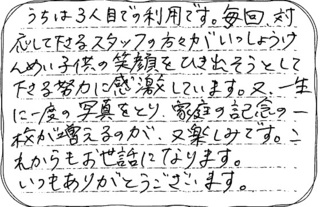 うちは3人目での利用です。毎回、対
応して下さるスタッフの方々がいっしょうけ
んめい子供の笑顔をひき出そうとして
下さる努力に感激しています。又、一生
に一度の写真をとり、家庭の記念の一
枚が増えるのが、又楽しみです。こ
れからもお世話になります。
いつもありがとうございます。